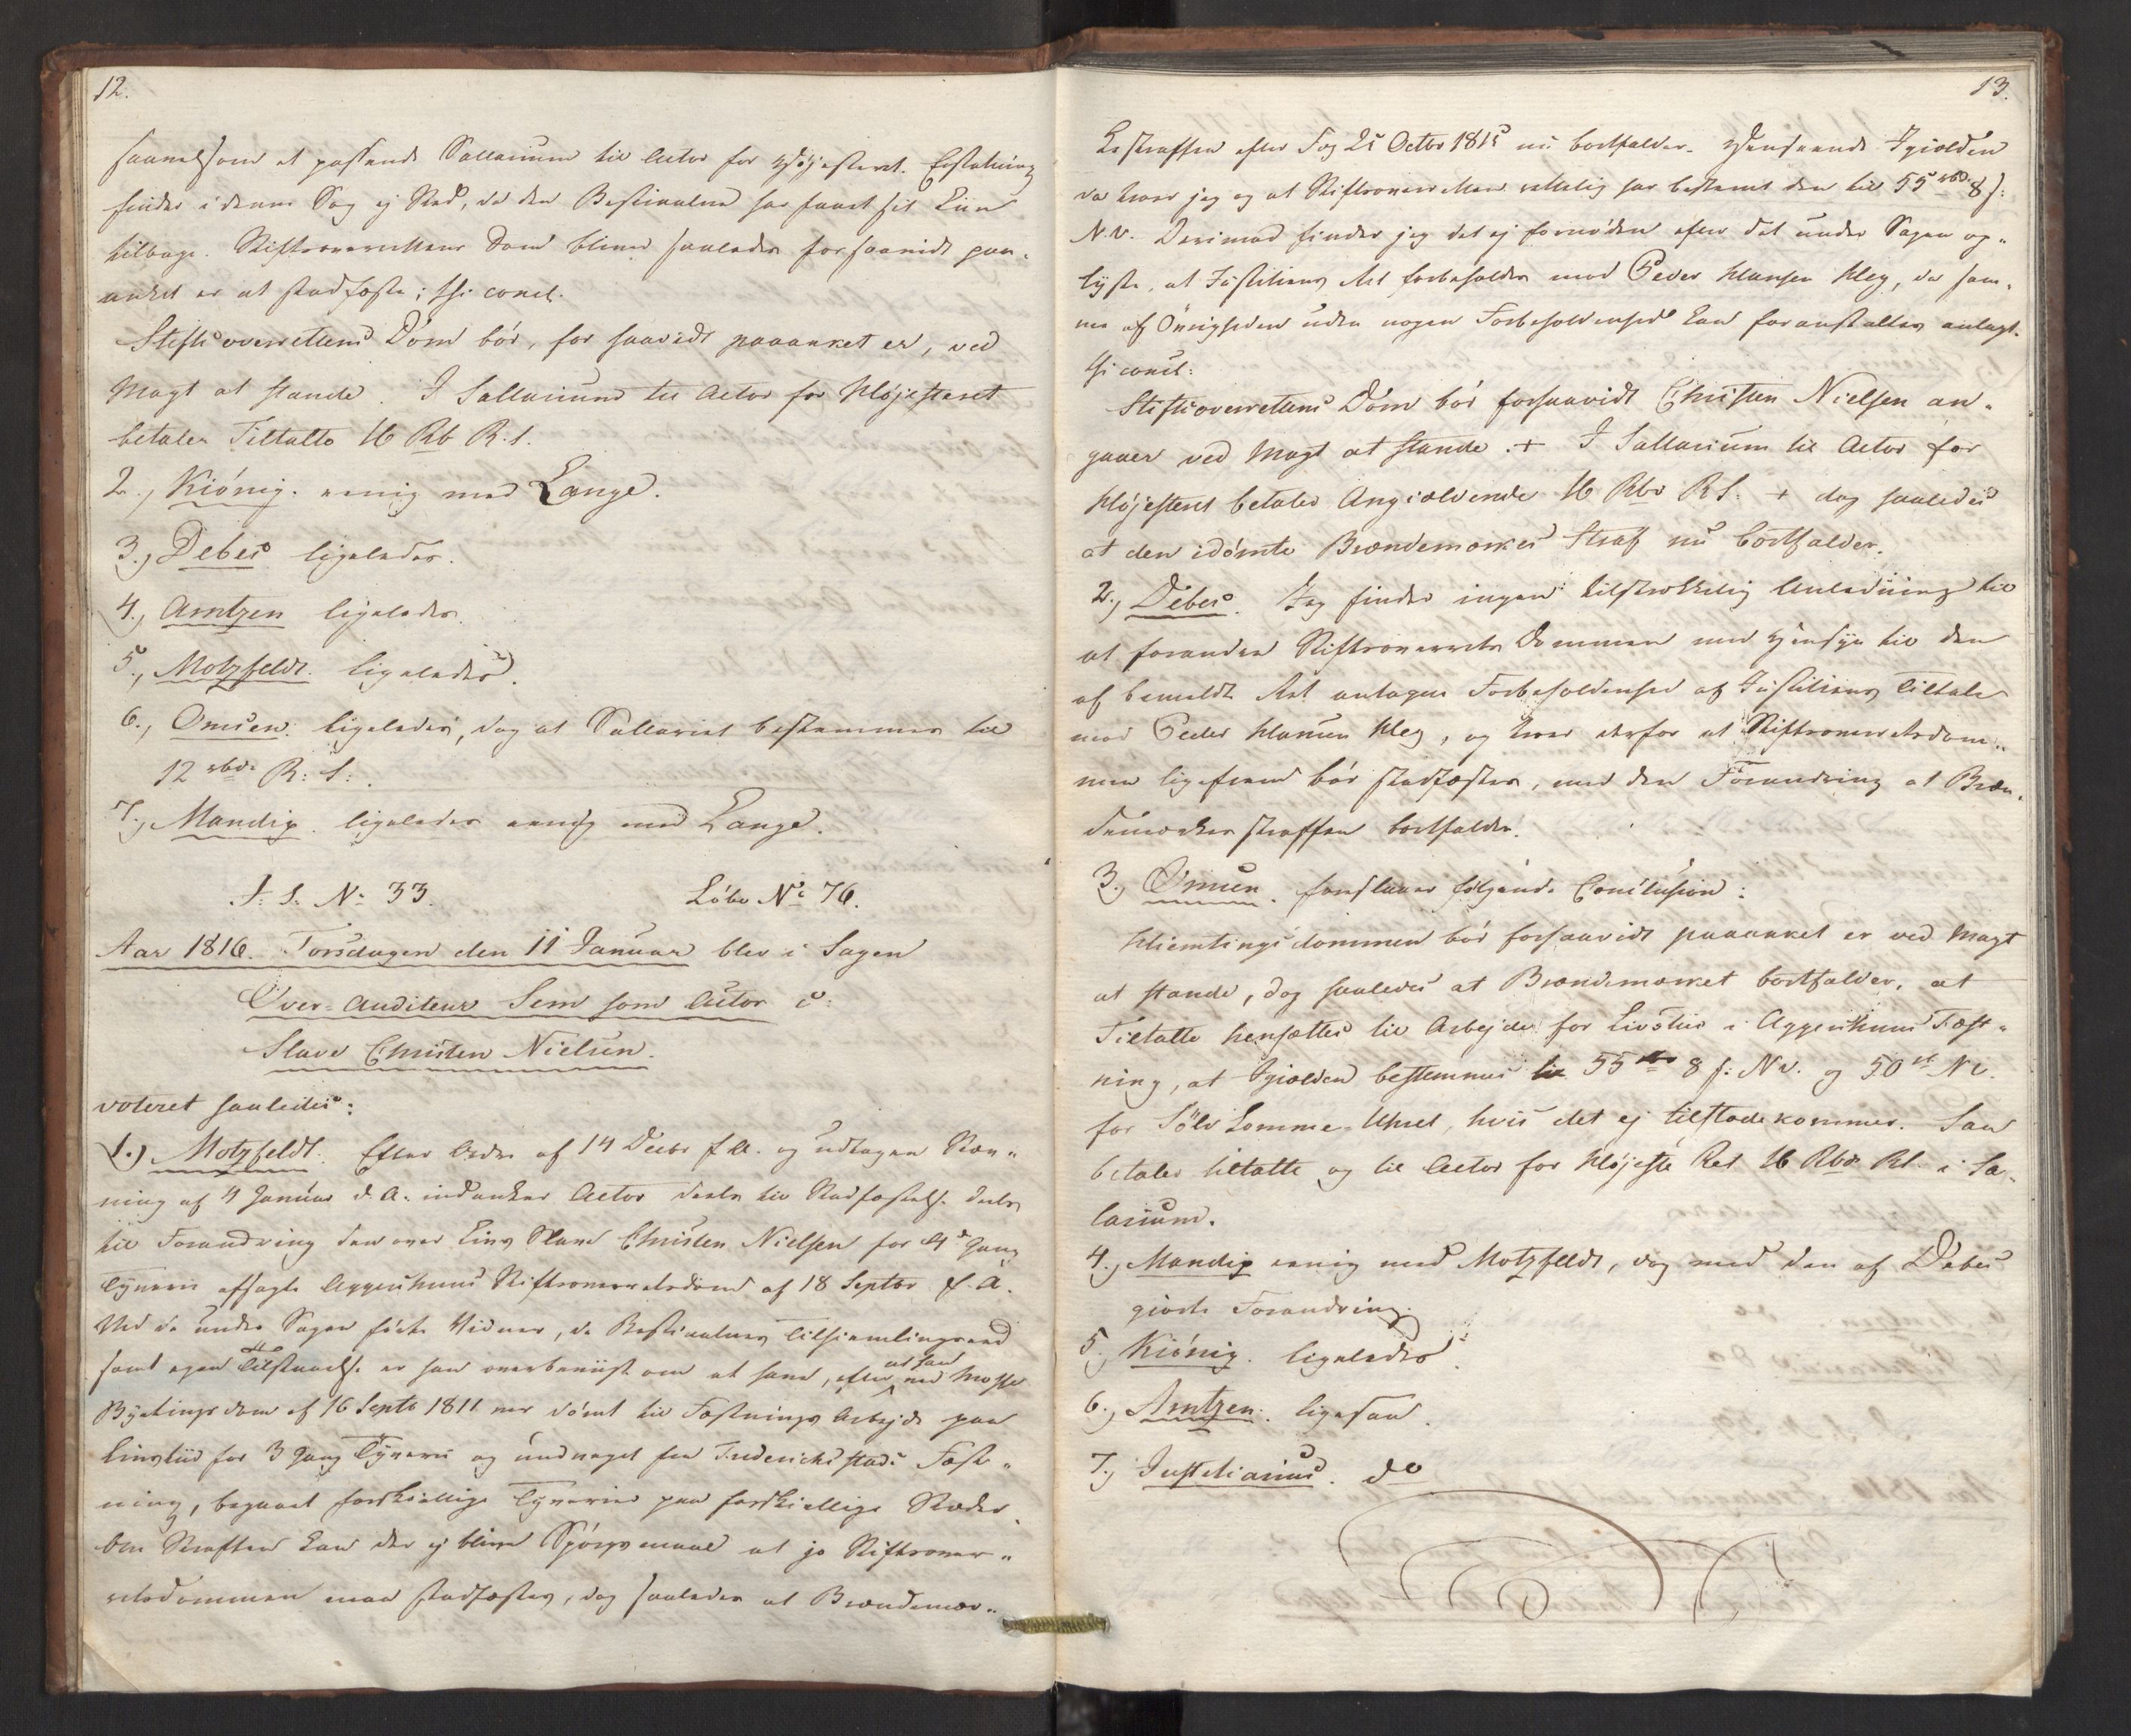 12.
saavelsom et passende Sallarium til Actor for Höjesteret. Erstatning
finder i denne Sag ej Sted, da den Bestiaalne har faaet sit Liin
tilbage. Stiftsoverrettens Dom bliver saaledes forsaavidt paa„
anket er at stadfæste; thi concl.
Stiftsoverrettens Dom bör, for saavidt paaanket er, ved
Magt at stande. I Sallarium til Actor for Höjesteret
betaler Tiltalte 16 Rb R. S.
2., Kiönig. eenig med Lange.
3., Debes ligeledes.
4., Arntzen ligeledes.
5., Motzfeldt. ligeledes.
6., Omsen. ligeledes, dog at Sallariet bestemmes til
12 rbd. R: S:
7., Mandix. ligeledes eenig med Lange.
J. S. No 33. Löbe No 76.
Aar 1816. Torsdagen den 11 Januar blev i Sagen
Over-Auditeur Sem som Actor c:
Slave Christen Nielsen.
voteret saaledes:
1.) Motzfeldt. Efter Ordre af 14 Decbr f. A. og udtagen Stæv„
ning af 4 Januar d. A. indanker Actor deels til Stadfæstelse deels
til Forandring den over Livs Slave Christen Nielsen for 4de Gang
Tyverie afsagte Aggershuus Stiftsoverretsdom af 18 Septbr f. A.
Ved de under Sagen förte Vidner, de Bestiaalnes Tilhiemlingseed
samt egen Tilstaaelse er han overbeviist om at have, efter at han ved Mosse
Byetings dom af 16 Septb 1811 var dömt til Fæstnings Arbejde paa
Livstiid for 3 Gang Tyverie og undveget fra Frederichsstads Fæst„
ning, begaaet forskiellige Tyverier paa forskiellige Stæder.
Om Straffen kan der ej blive Spörgsmaal at jo Stiftsover„
retsdommen maa stadfæstes, dog saaledes at Brændemær„
13.
kestraffen efter Fog 25 Octbr 1815 nu bortfalder. Henseende Igiælden
da troer jeg og at Stiftsoverretten rettelig har bestemt den til 55 rbd 8 s:
N.V. Derimod finder jeg det ej fornöden efter det under Sagen op„
lyste, at Justitiens Ret forbeholdes mod Peder Hansen Kleg, da sam„
me af Övrigheden uden nogen Forbeholdenhed kan foranstaltes anlagt.
thi concl:
Stiftsoverrettens Dom bör forsaavidt Christen Nielsen an„
gaaer ved Magt at stande. + I Sallarium til Actor for
Höjesteret betaler Angiældende 16 Rbd R S. + dog saaledes
at den idömte Brændemærkes Straf nu bortfalder.
2., Debes. Jeg finder ingen tilstrækkelig Anledning til
at forandre Stiftsoverrets Dommen med Hensyn til den
af bemeldte Ret antagne Forbeholdenhed af Justitiens Tiltale
mod Peder Hansen Kleg, og troer derfor at Stiftsoverretsdom„
men ligefrem bör stadfæstes, med den Forandring at Bræn„
demærkes straffen bortfalder.
3., Omsen. foreslaaer fölgende Conclusion:
Hiemtingsdommen bör forsaavidt paaanket er ved Magt
at stande, dog saaledes at Brændemærket bortfalder, at
Tiltalte hensættes til Arbejde for Livstiid i Aggershuus Fæst„
ning, at Igiælden bestemmes til 55 rbd 8 s: Nv. og 50 rd Nv.
for Sölv Lomme-Uhret, hvis det ej tilstædekommer. Saa
betaler tiltalte og til Actor for Höjeste Ret 16 Rbd RS. i Sa„
larium.
4., Mandix eenig med Motzfeldt, dog med den af Debes
giorte Forandring.
5., Kiönig. ligeledes.
6., Arntzen. ligesaa.
7., Justitiarius. do